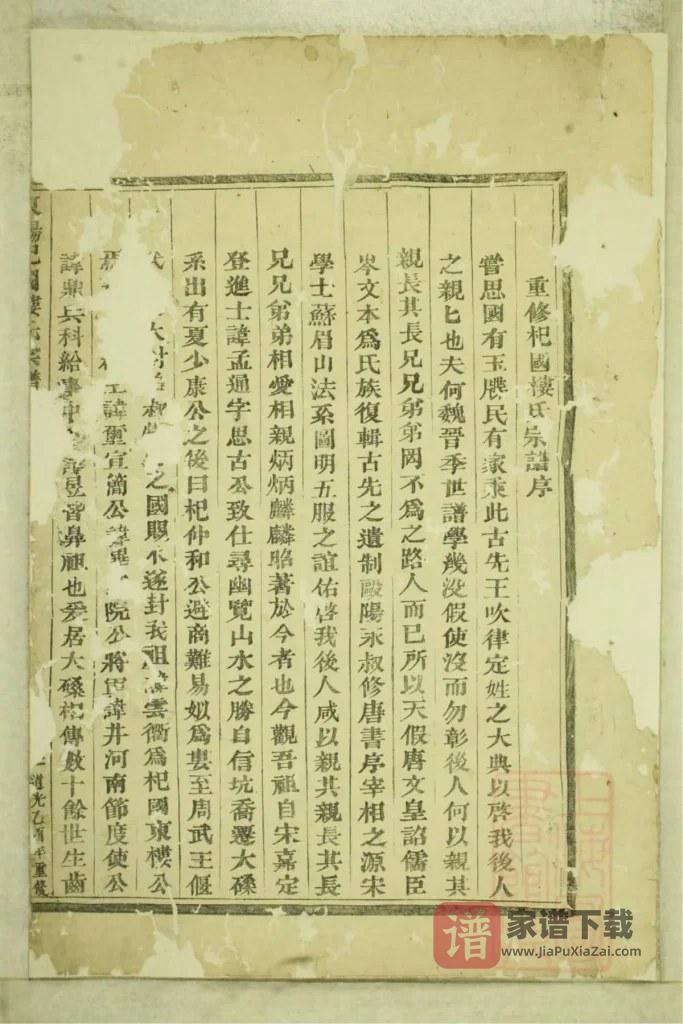 重修杞國樓氏宗譜序
嘗思國有玉牒民有家乘此古先王吹律定姓之大典以啓我後人
之親匕也夫何魏晉季世譜學幾没假使沒而勿彰後人何以親其
親長其長兄兄弟弟罔不爲之路人而已所以天假唐文皇詔儒臣
岑文本爲氏族復輯古先之遺制歐陽永叔修唐書序宰相之源宋
學士蘇眉山法系圖明五服之誼佑啓我後人咸以親其親長其長
兄兄弟弟相愛相親炳炳麟麟昭著於今者也今觀吾祖自宋嘉定
登進士諱孟通字思古公致仕尋幽覽山水之勝自信坑喬遷大磉
系出有夏少康公之後曰杞仲和公避商難易姒爲婁至周武王偃
之國賜 遂封我祖諱雲衢爲杞國東樓公
諱重宣簡公諱 院公將 諱井河南節度使公
諱鼎兵科給事中 諱昱皆鼻祖也爰居大磉 傳數十餘世生齒
陽 國樓氏宗譜
道光乙酉年重修
家谱下载
www.JiaPuXiaZai.com
谱